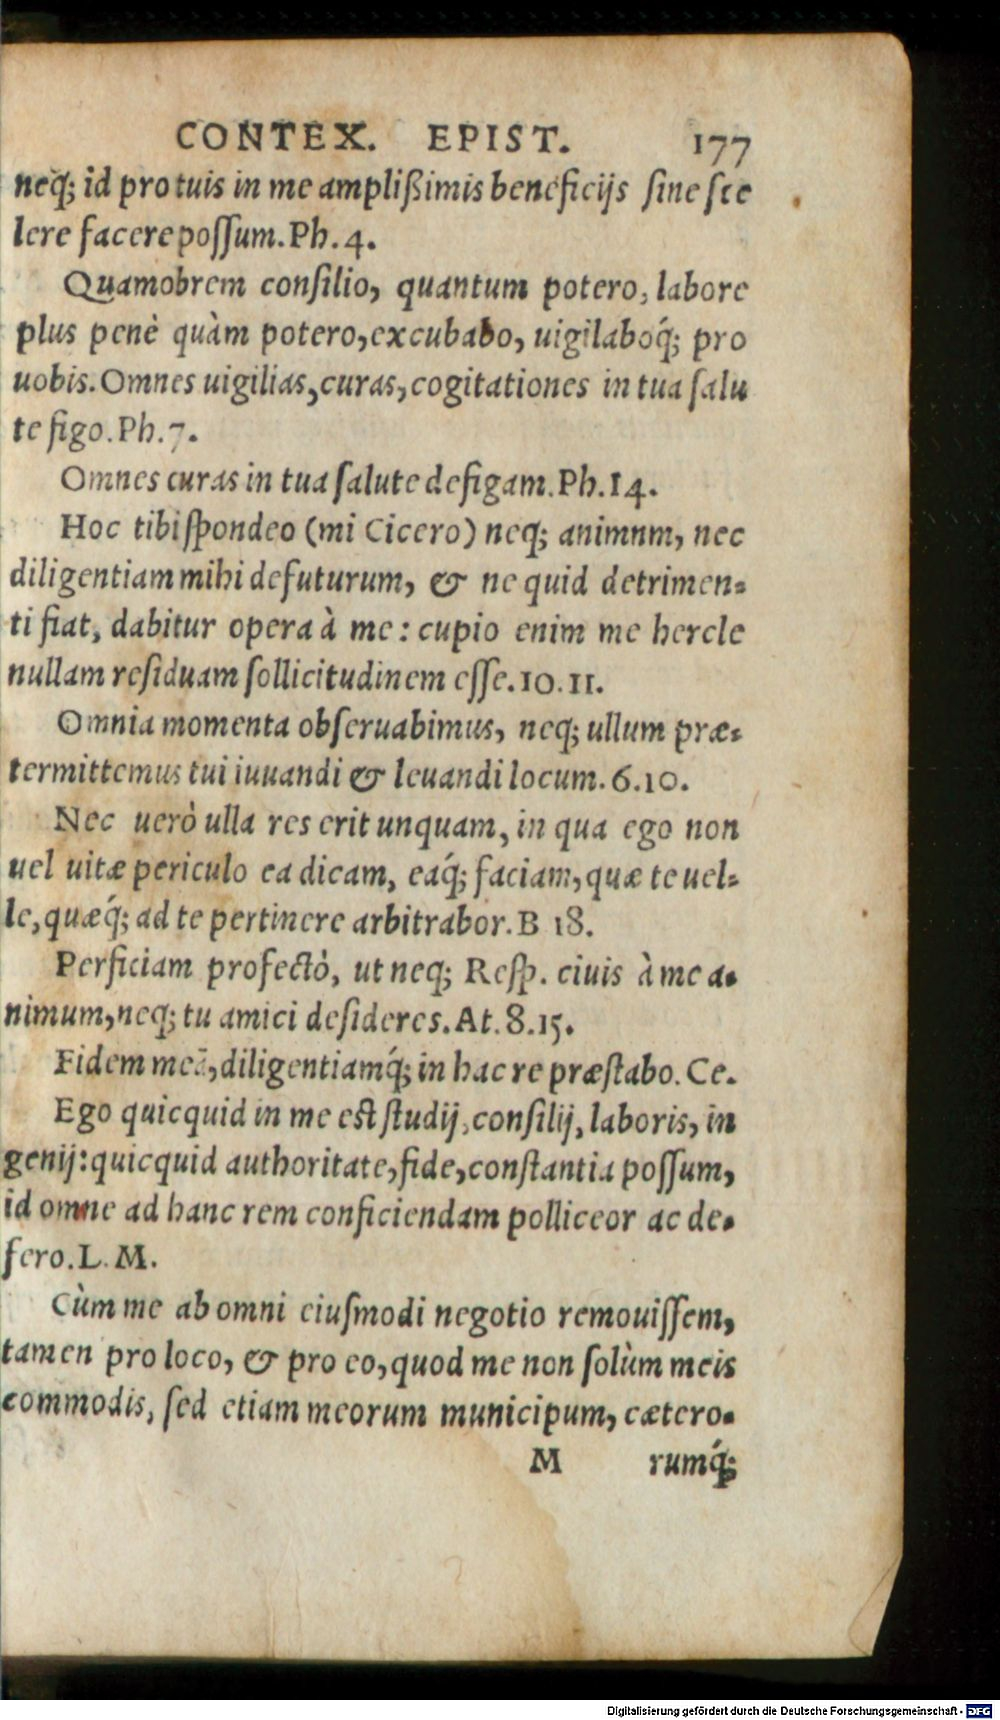 CONTEX. EPIST. 177
neq; id pro tuis in me amplißimis beneficijs sine sce
lere facere possum. Ph. 4.
Quamobrem consilio, quantum potero, labore
plus penè quàm potero, excubabo, uigilaboq́; pro
uobis. Omnes uigilias, curas, cogitationes in tua salu
te figo. Ph. 7.
Omnes curas in tua salute defigam. Ph. 14.
Hoc tibi spondeo (mi Cicero) neq; animnm, nec
diligentiam mihi defuturum, & ne quid detrimen-
ti fiat, dabitur opera à me: cupio enim me hercle
nullam residuam sollicitudinem esse. 10. 11.
Omnia momenta obseruabimus, neq; ullum præ-
termittemus tui iuuandi & leuandi locum. 6. 10.
Nec uerò ulla res erit unquam, in qua ego non
uel uitæ periculo ea dicam, eaq́; faciam, quæ te uel-
le, quæq́; ad te pertinere arbitrabor. B 18.
Perficiam profectò, ut neq; Resp. ciuis à me a-
nimum, neq; tu amici desideres. At. 8. 15.
Fidem meã, diligentiamq́; in hac re præstabo. Ce.
Ego quicquid in me est studij, consilij, laboris, in
genij: quicquid authoritate, fide, constantia possum,
id omne ad hanc rem conficiendam polliceor ac de-
fero. L. M.
Cùm me ab omni eiusmodi negotio remouissem,
tamen pro loco, & pro eo, quod me non solùm meis
commodis, sed etiam meorum municipum, cætero-
M rumq́;
Digitalisierung gefördert durch die Deutsche Forschungsgemeinschaft - DFG